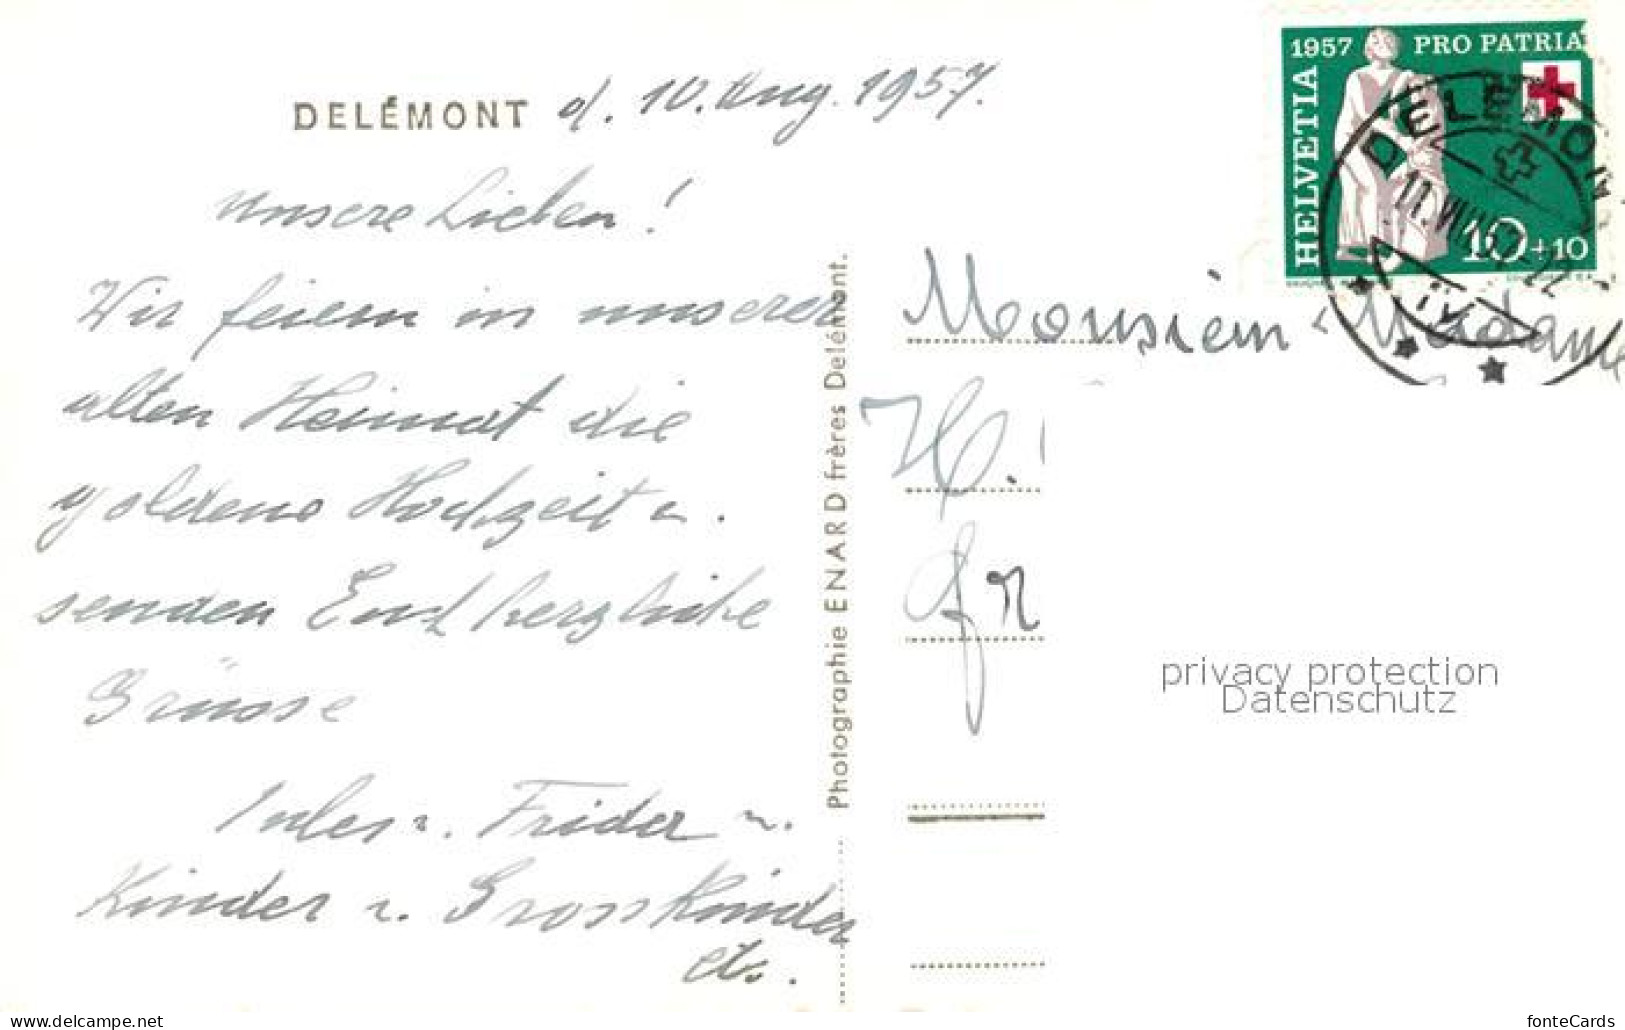 DELÉMONT d. 10. Aug. 1957.
Unsere Lieben!
Wir feiern in unserer
alten Heimat die
goldene Hochzeit u.
senden Euch herzliche
Grüsse
Jules u. Frider u.
Kinder u. Grosskinder
etc.
Photographie ENARD frères Delémont.
1957 PRO PATRIA
HELVETIA
10+10
DELÉMONT
11.VIII.57-22
Monsieur & Madame
H.
privacy protection
Datenschutz
www.delcampe.net
fonteCards